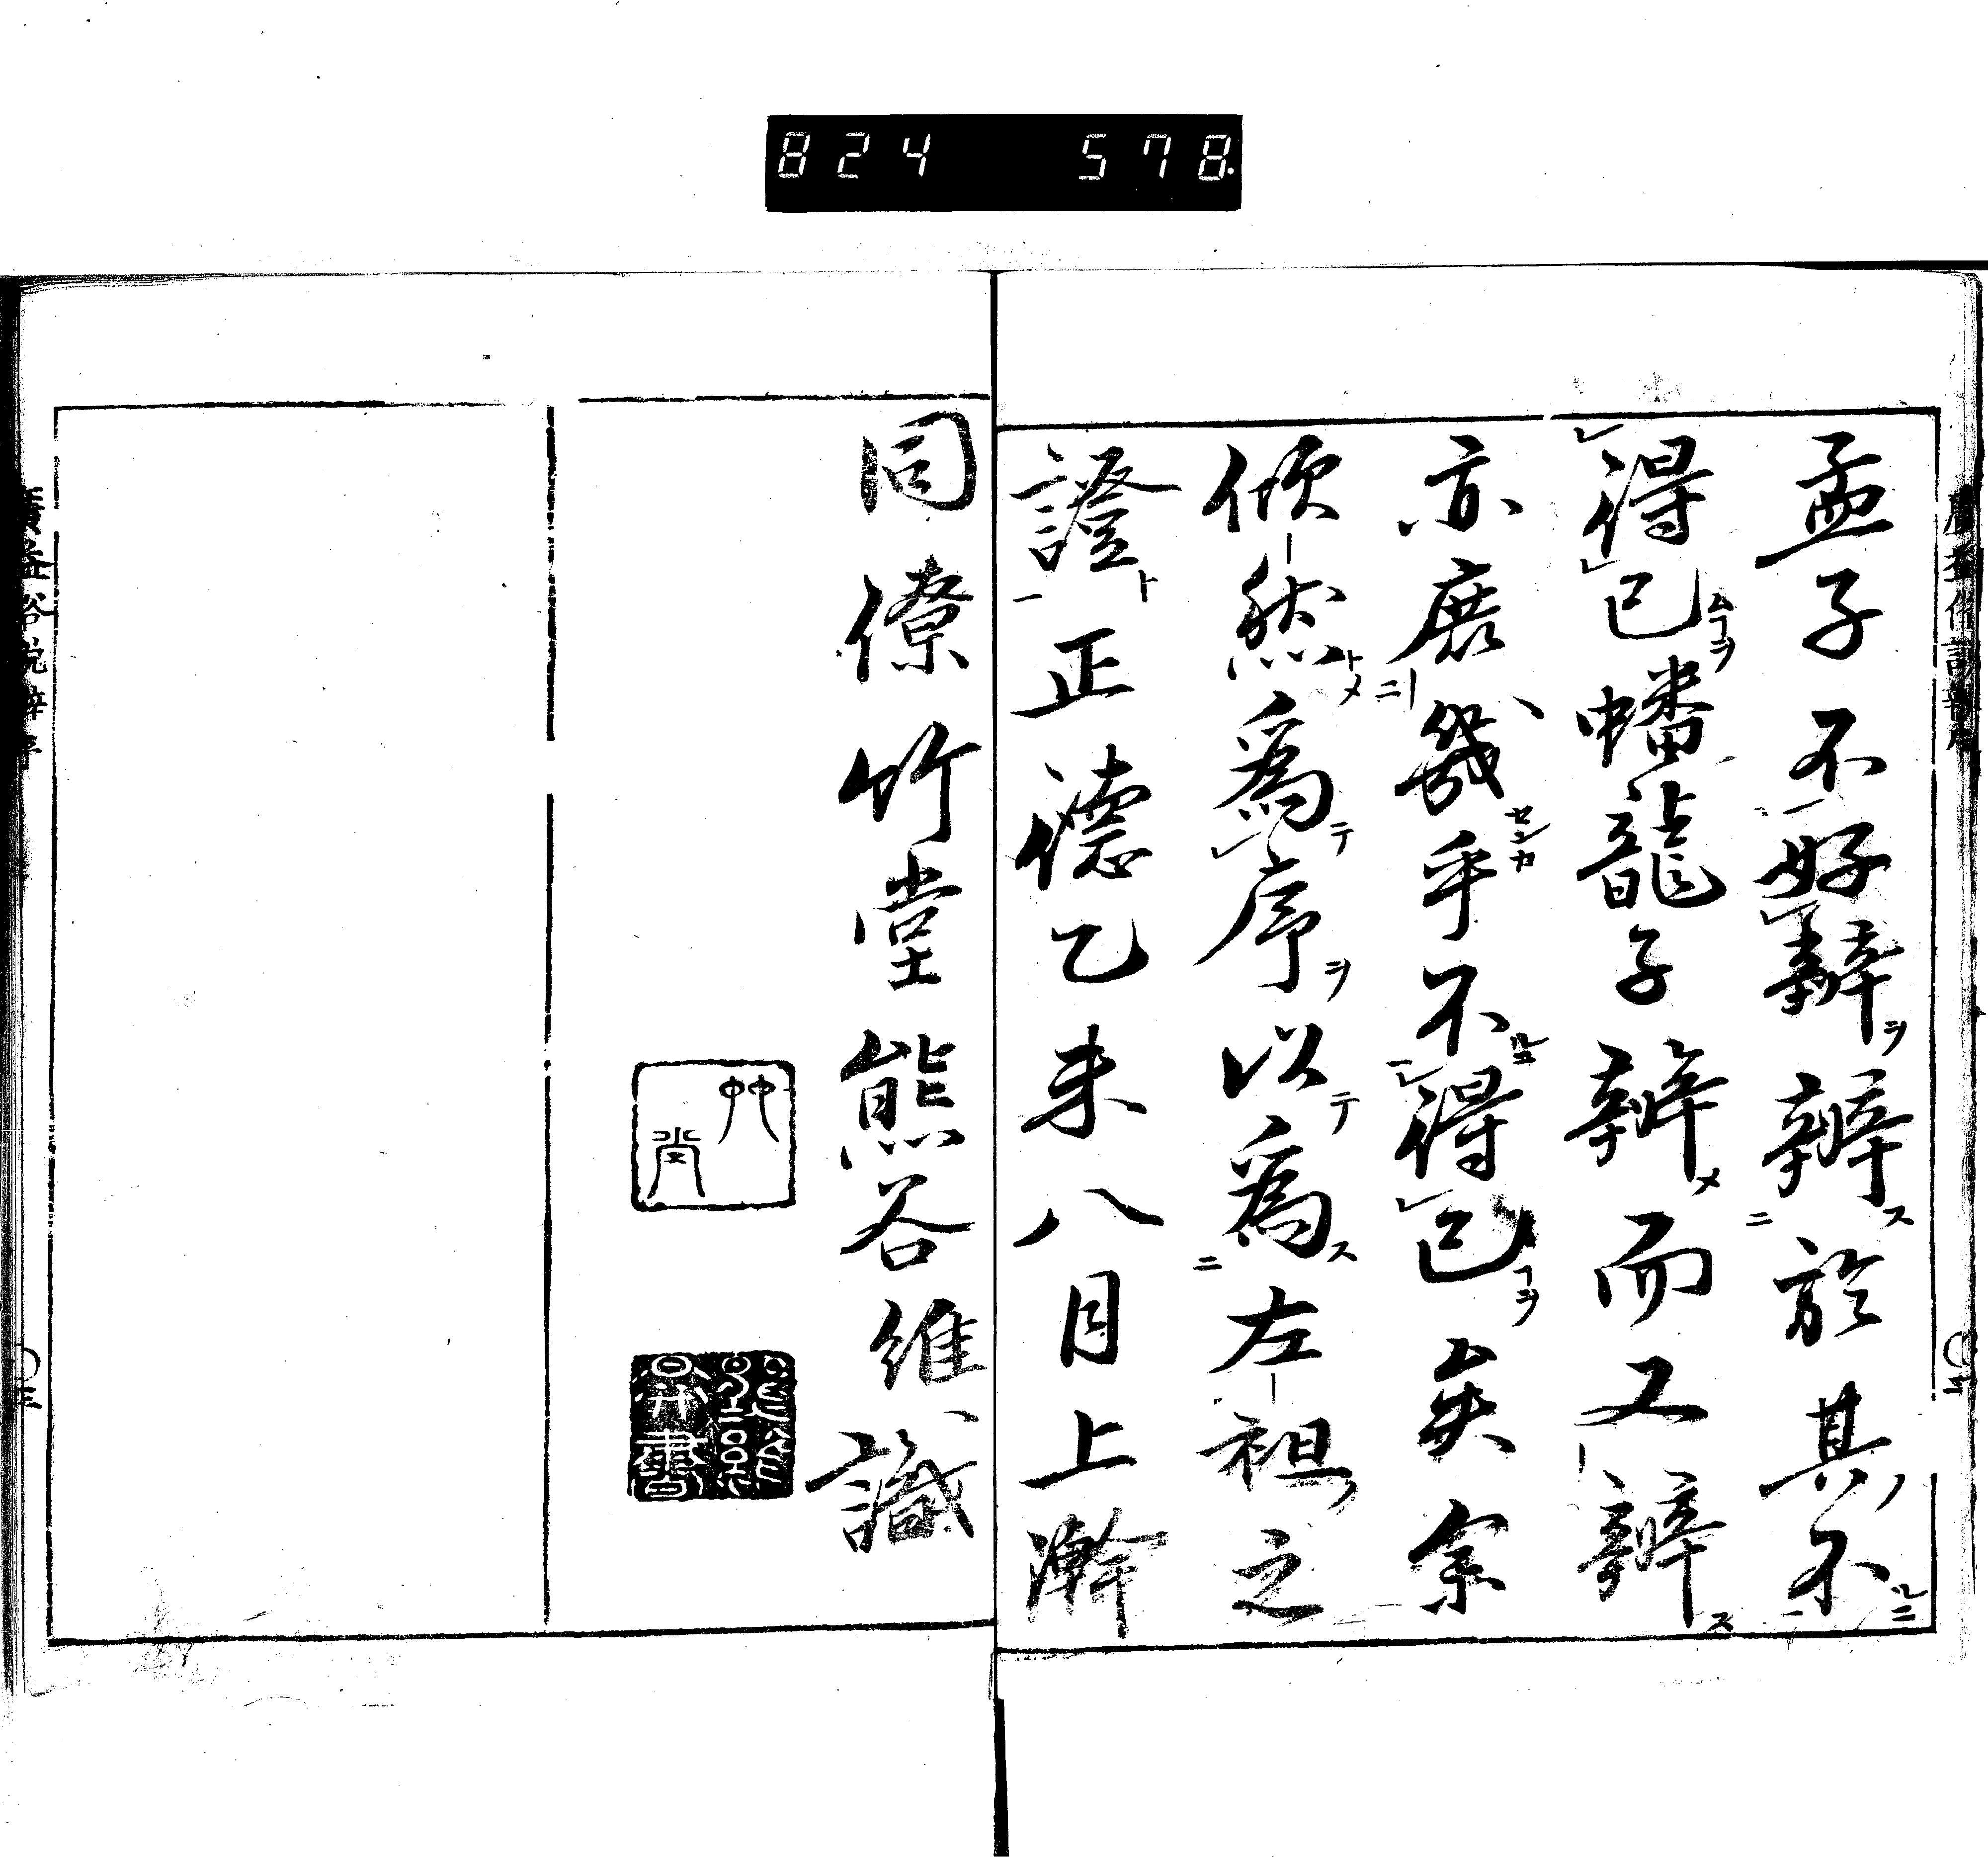 824 578
孟子不好辯辯於其不
得已幡龍子辯而又辯
亦庶幾乎不得已矣余
傾然爲序以爲左袒之
證正德乙未八月上澣
同僚竹堂熊谷維識
竹堂
廣益俗説辯序